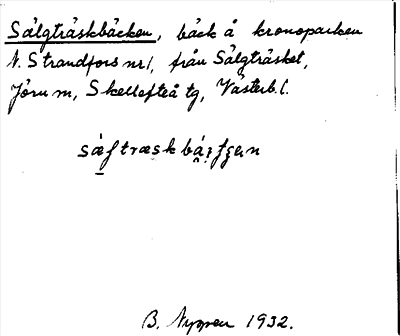 Sälgträskbäcken, bäck å kronoparken
N. Strandfors nr 1, från Sälgträsket,
Jörn m, Skellefteå tg, Västerb. l.
B. Nygren 1932.